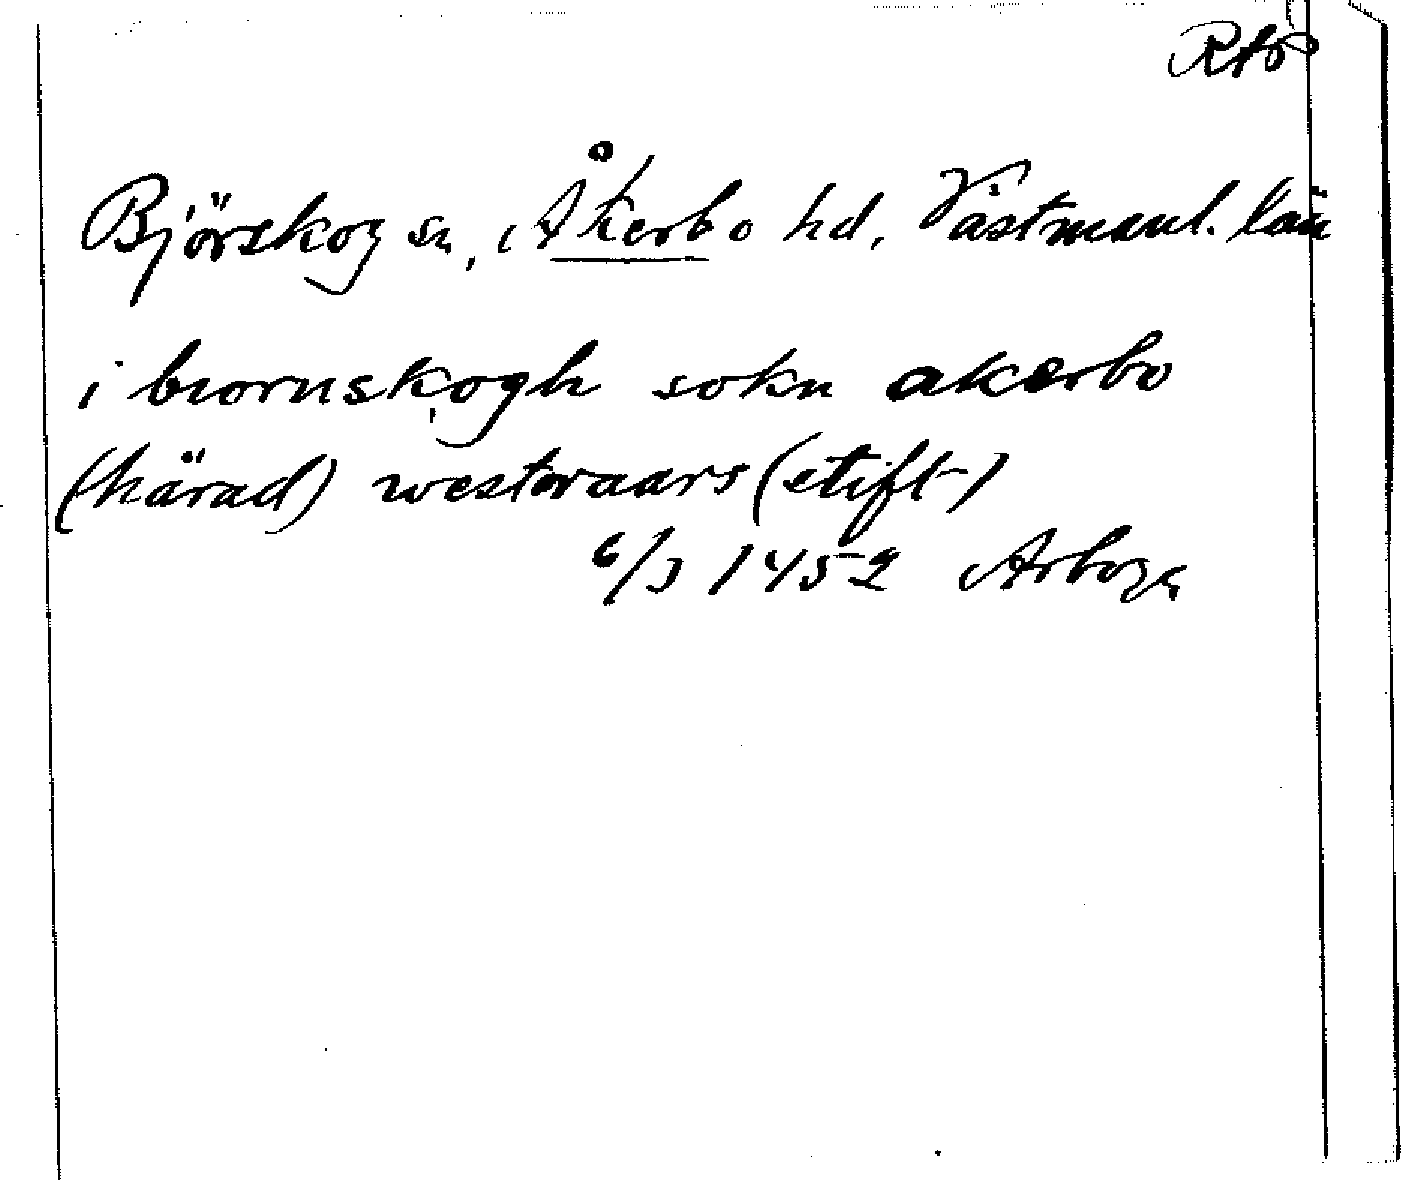 Rto
Björskog sn, Åkerbo hd, Västmanl. län
i biornskogh sokn akerbo
(härad) westwraars (stift)
6/3 1452 Arboga